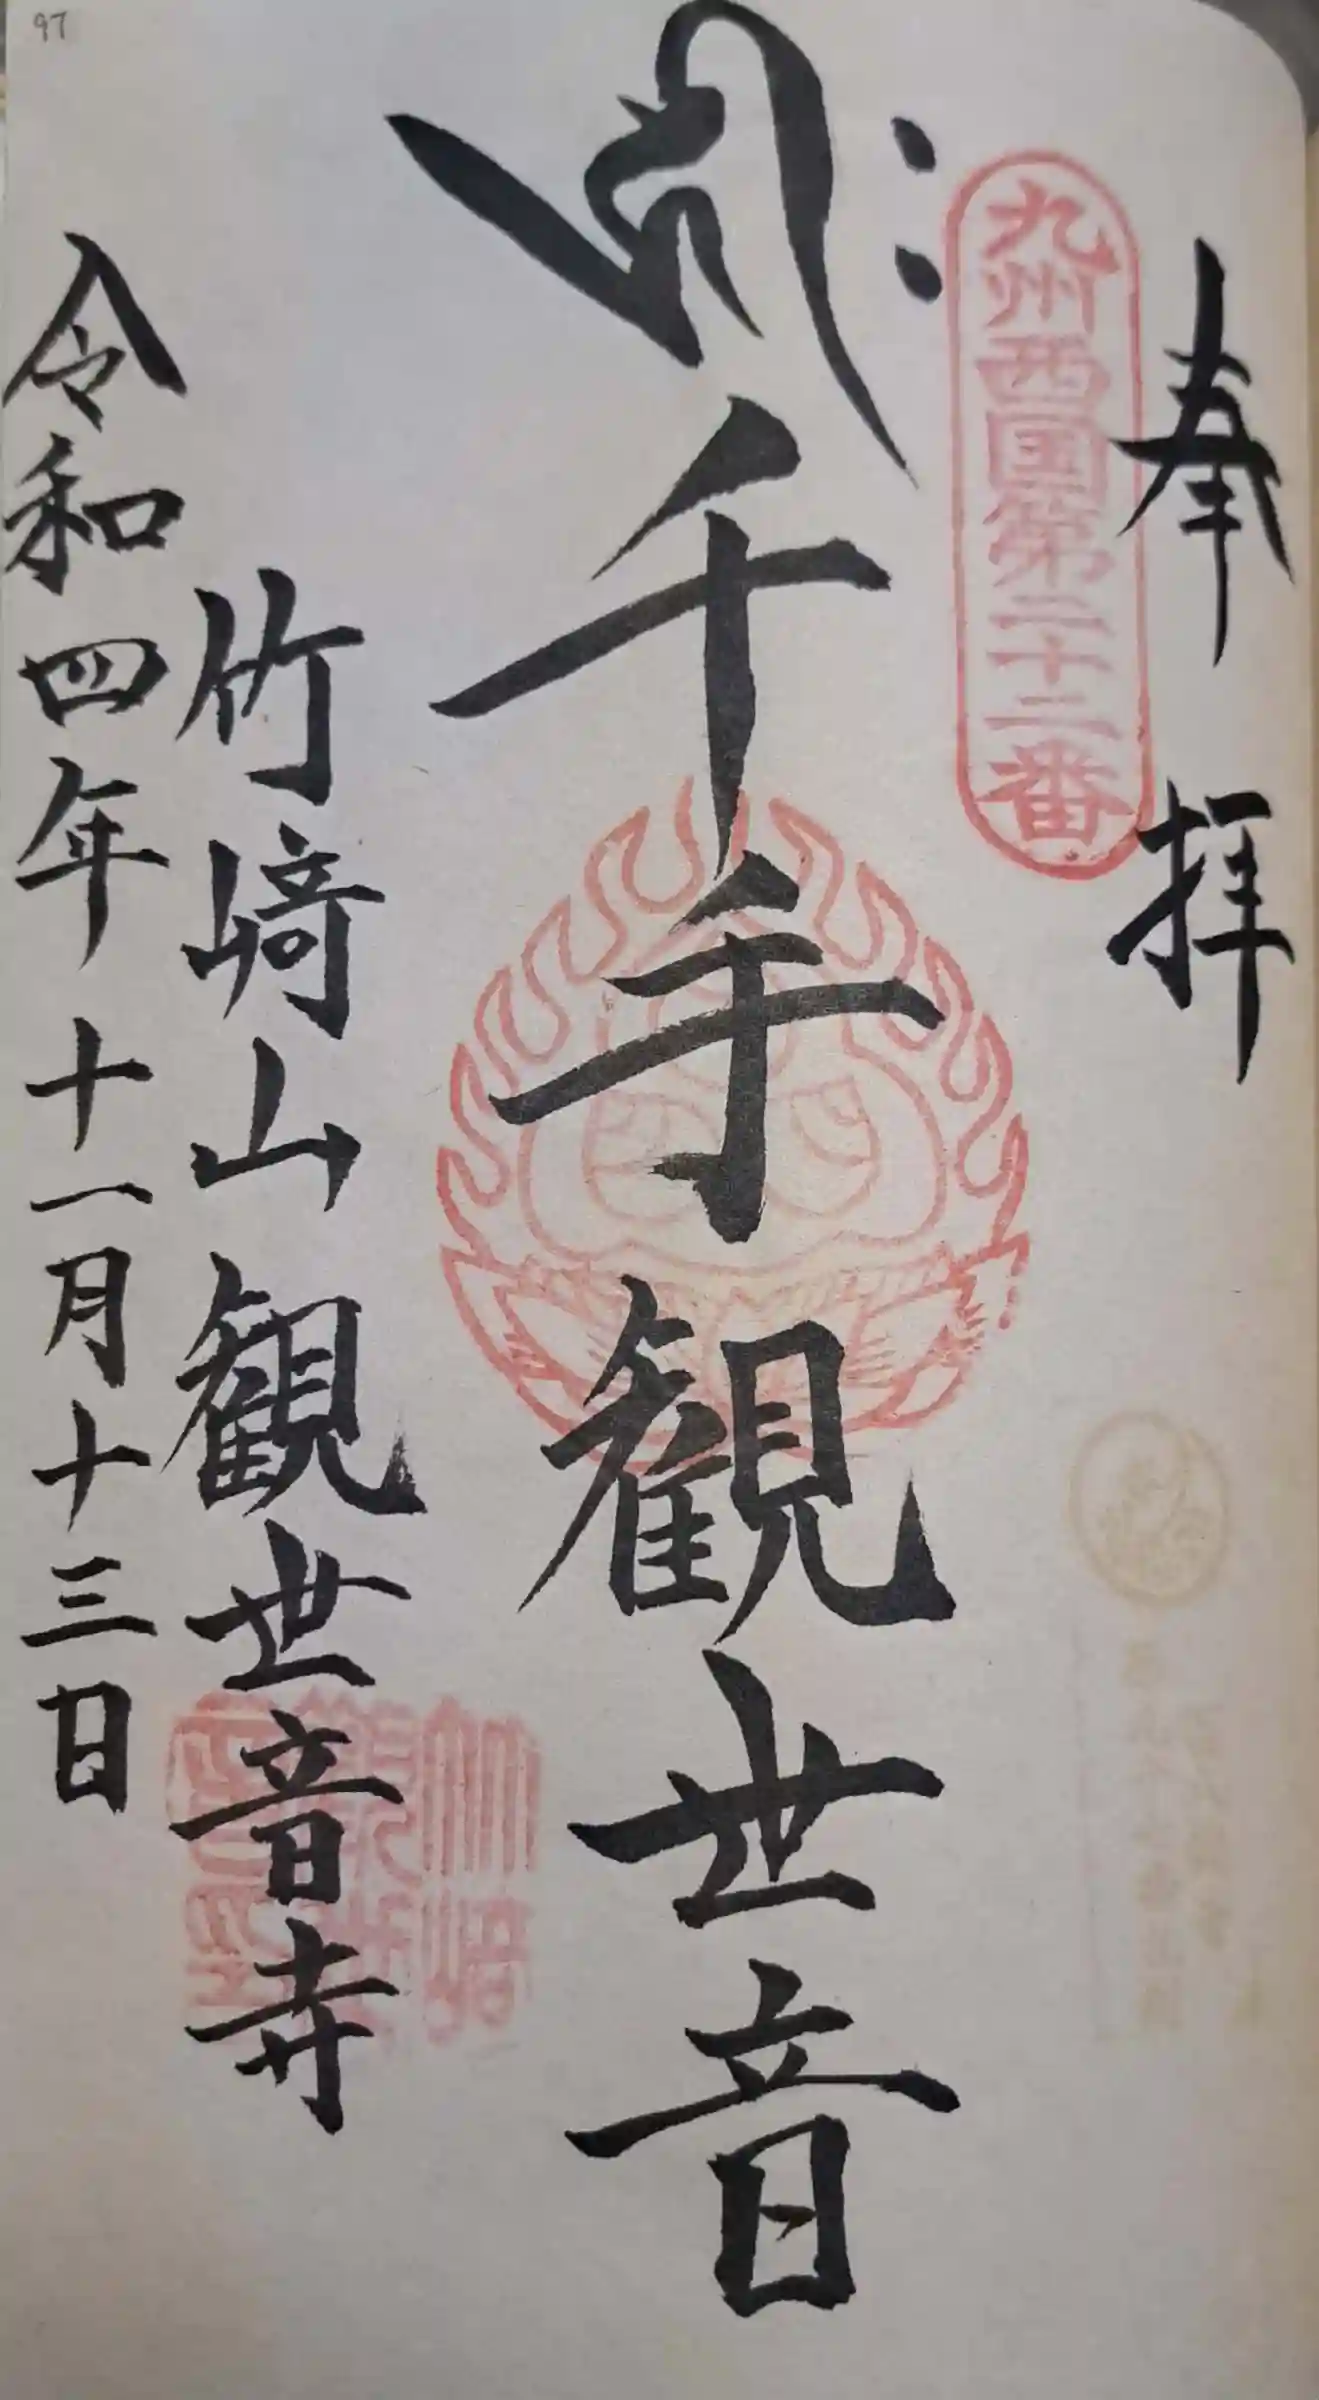 97
奉拝
九州西国第二十二番
千手観世音
竹﨑山観世音寺
令和四年十一月十三日